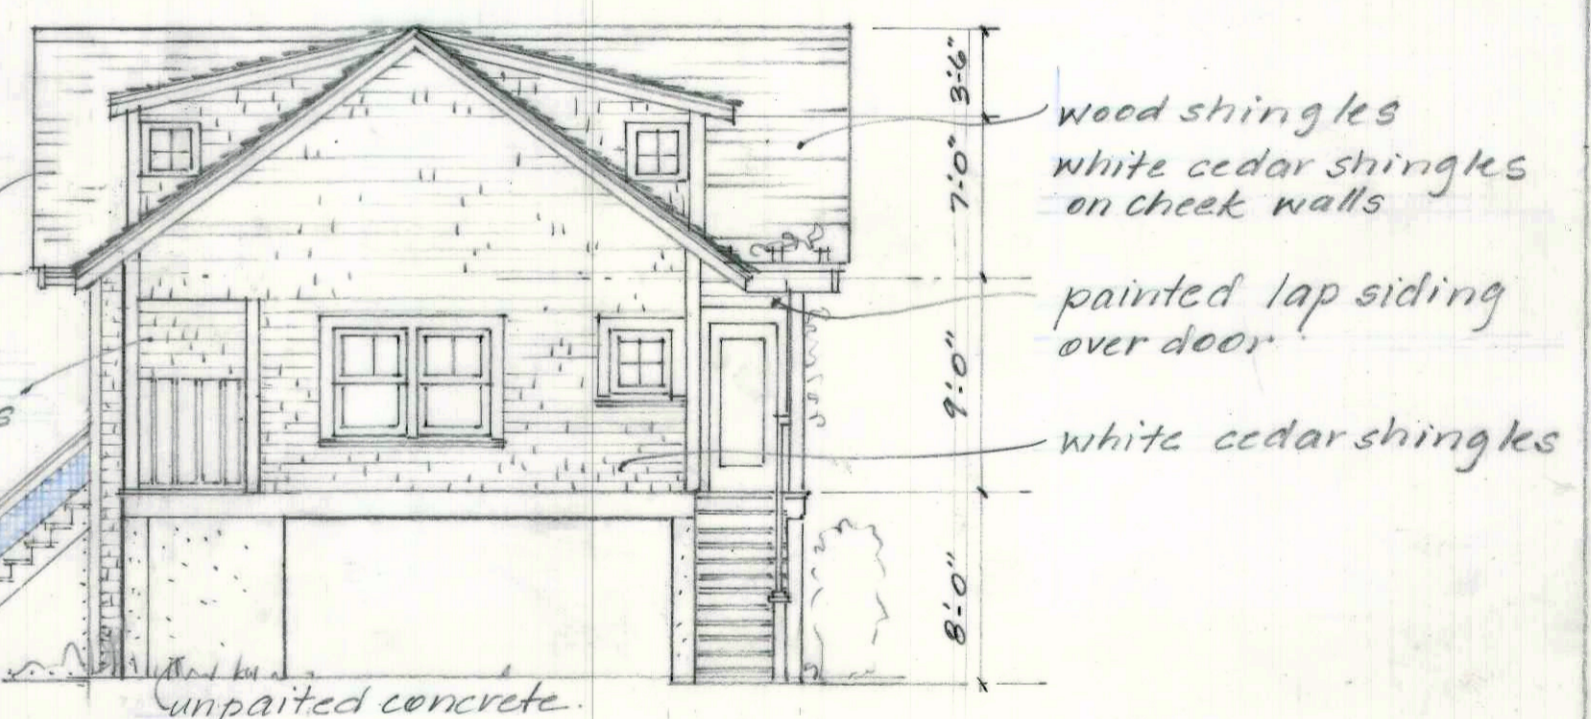 3'-6"
wood shingles
white cedar shingles
on cheek walls
7'-0"
painted lap siding
over door
9'-0"
white cedar shingles
8'-0"
unpaited concrete.